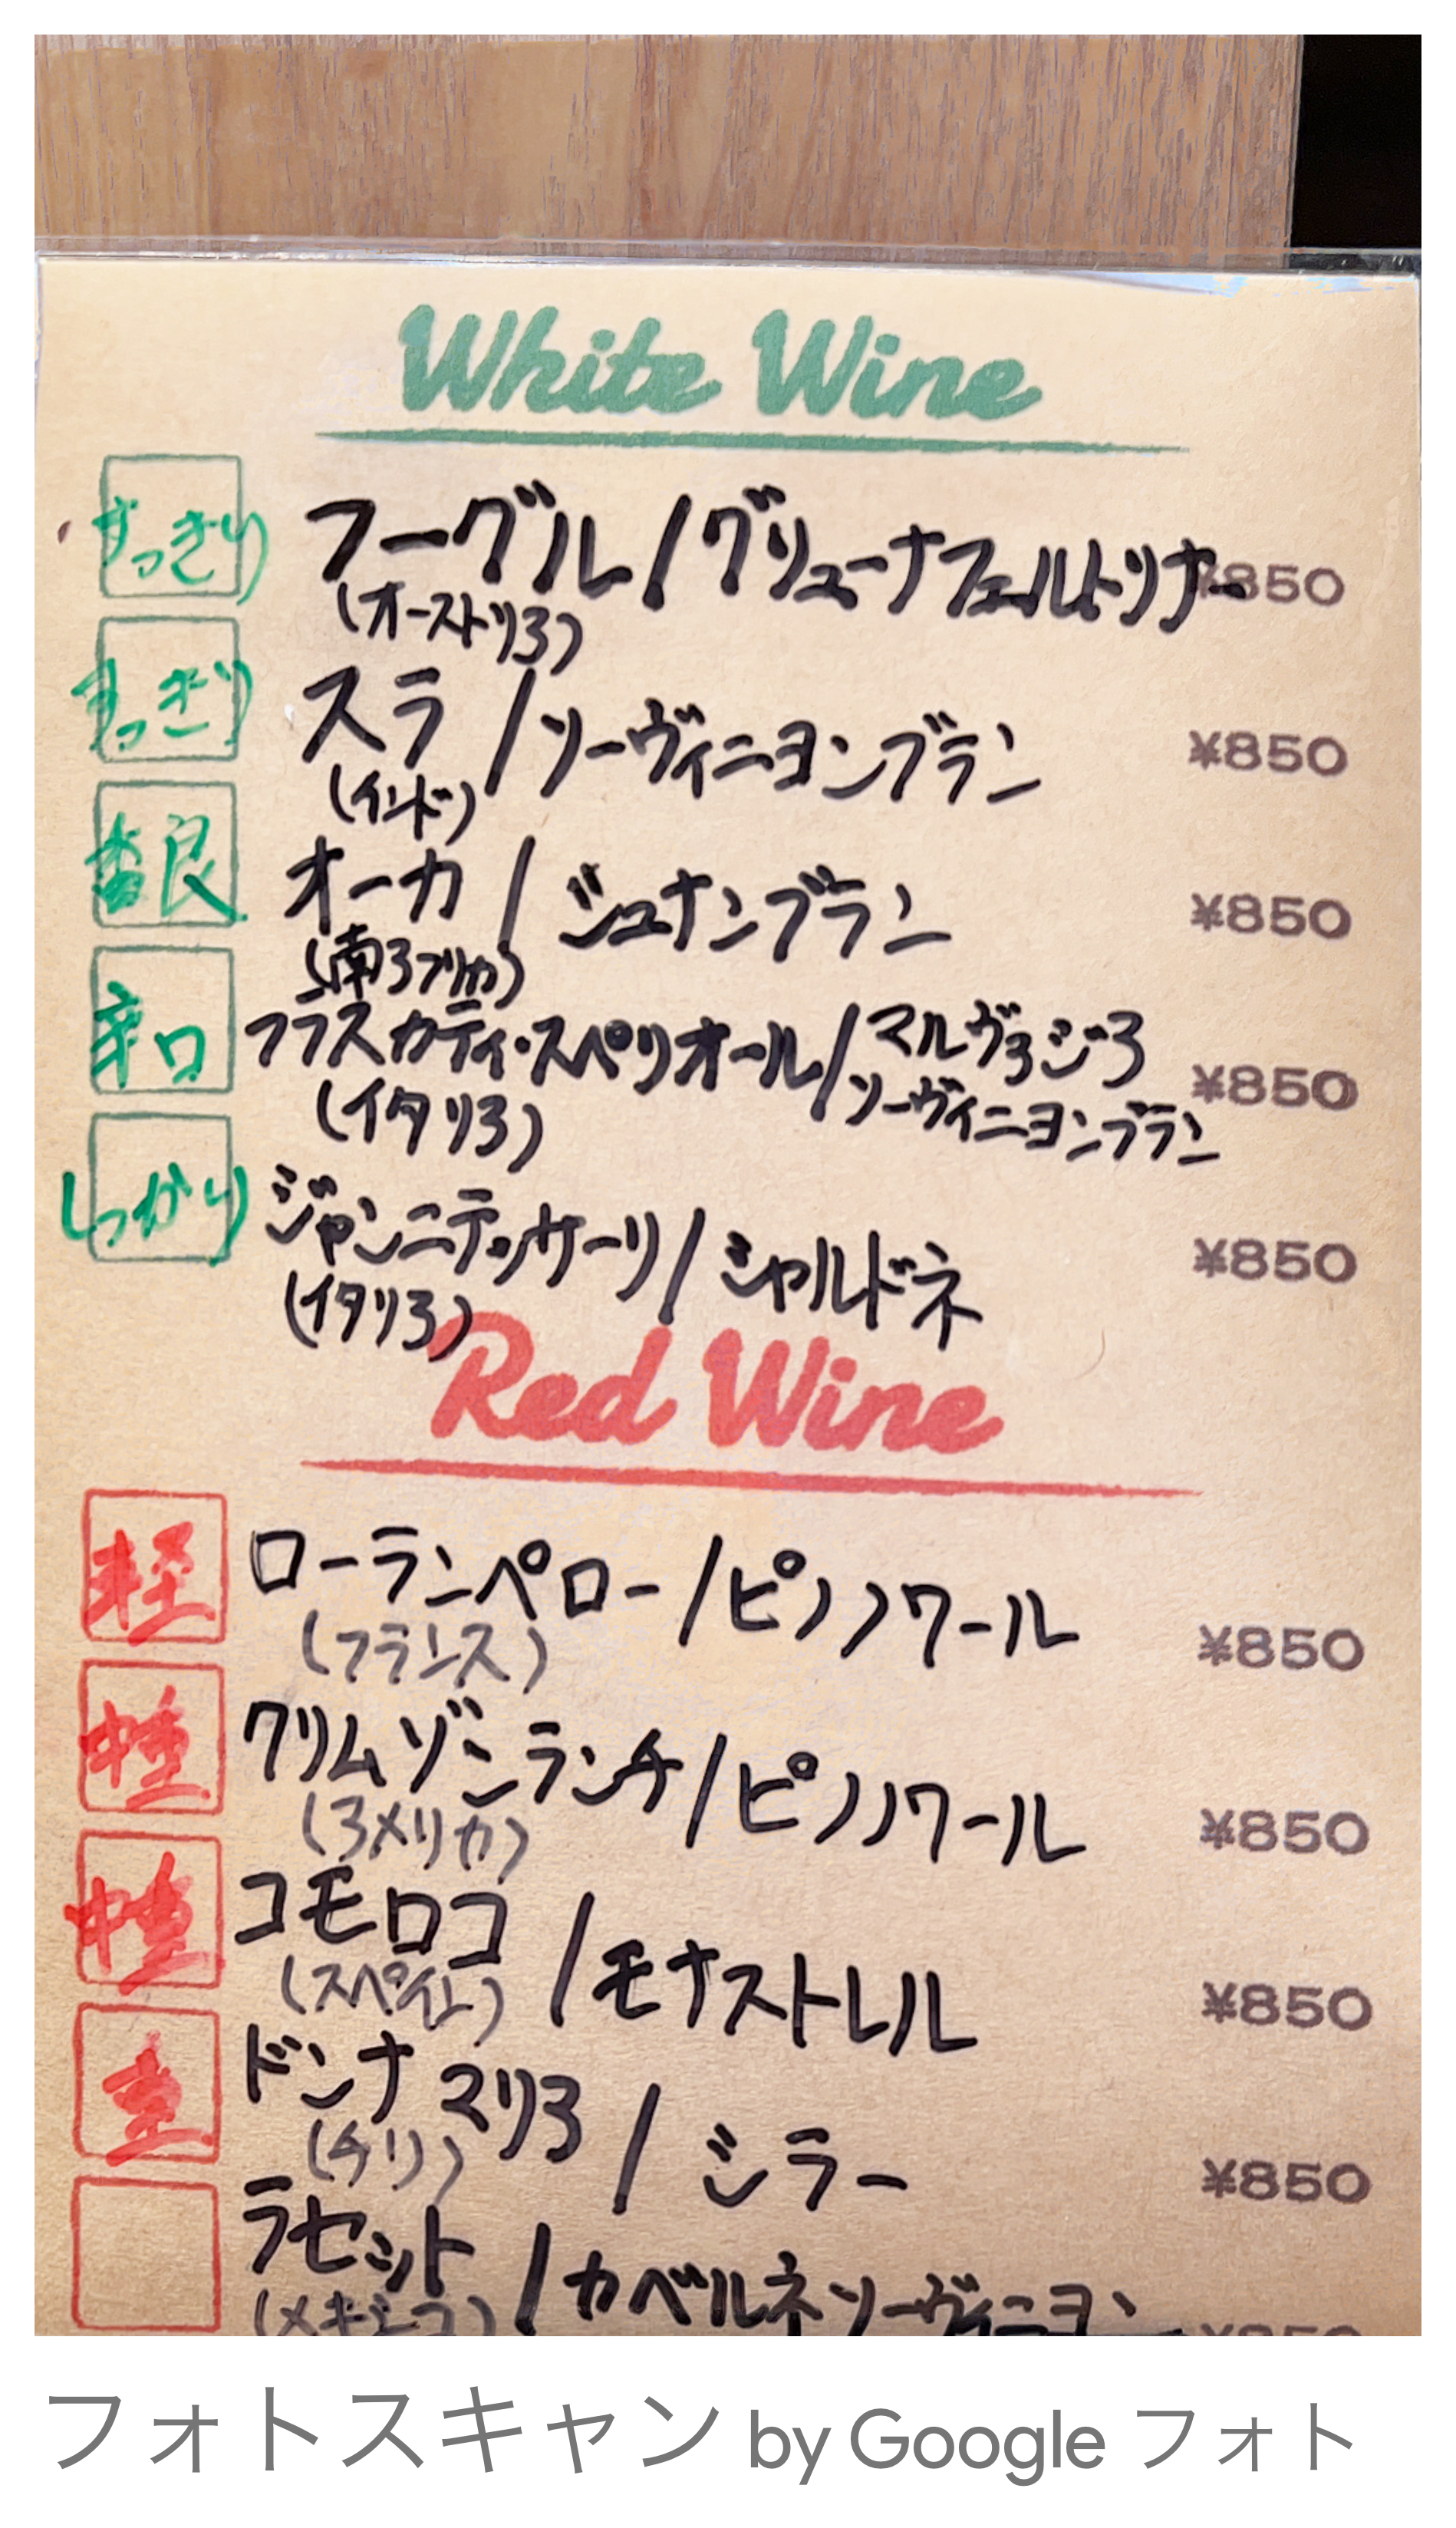 White Wine
すっきり フーグル/グリューナフェルトリナー ¥850
(オーストリア)
すっきり スラ/ソーヴィニヨンブラン ¥850
(インド)
香良 オーカ/シュナンブラン ¥850
(南アフリカ)
辛口 フラスカティ・スペリオール/マルヴァジア ¥850
ソーヴィニヨンブラン
(イタリア)
しっかり ジャンニテッサーリ/シャルドネ ¥850
(イタリア)
Red Wine
軽 ローランペロー/ピノノワール ¥850
(フランス)
中軽 クリムゾンランチ/ピノノワール ¥850
(アメリカ)
中重 コモロコ/モナストレル ¥850
(スペイン)
重 ドンナ マリア/シラー ¥850
(チリ)
ラセット/カベルネソーヴィニヨン ¥850
(メキシコ)
フォトスキャン by Google フォト